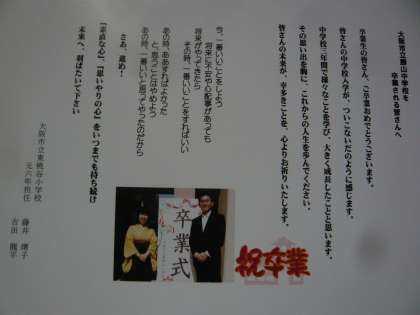 大阪市立勝山中学校を
卒業される皆さんへ
卒業生の皆さん、ご卒業おめでとうございます。
皆さんの中学校入学が、ついこないだのように感じます。
中学校三年間で様々なことを学び、大きく成長したことと思います。
その思い出を胸に、これからの人生を歩んでください。
皆さんの未来が、幸多きことを、心よりお祈りいたします。
今、一番いいことをしよう
将来に不安や心配事があっても
将来がやってきたら
その時、一番いいことをすればいい
あの時、ああすればよかった
と、思うことはやめよう
あの時、一番いいと思ってやったのだから
さあ、進め!
「素直な心」、「思いやりの心」をいつまでも持ち続け
未来へ、羽ばたいて下さい
大阪市立東桃谷小学校
元六年担任
藤井 靖子
吉田 龍平
卒業式
祝卒業